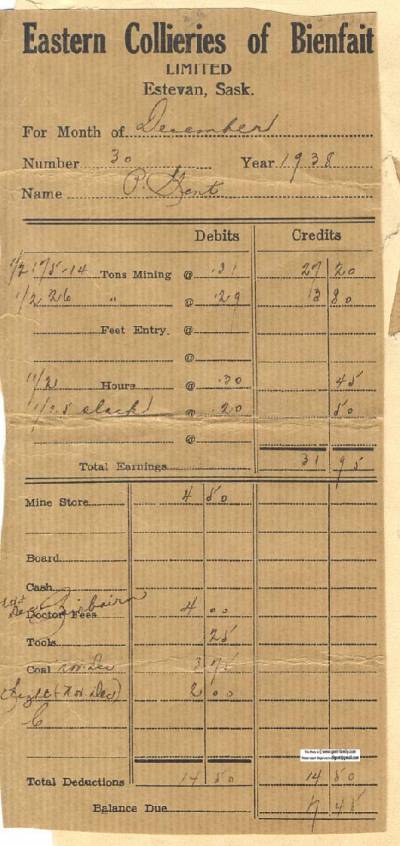 Eastern Collieries of Bienfait
LIMITED
Estevan, Sask.
For Month of December
Number 30 Year 1938
Name P. Gent
Debits Credits
1/2 175-14 Tons Mining @ .31 27 20
1/2 26 " @ .29 13 80
Feet Entry @
@
1/2 Hours @ .30 45
slack @ .20 50
@
Total Earnings 31 95
Mine Store 4 50
Board
Cash
Doctor Fees 4 00
Tools 25
Coal 3 75
2 00
Total Deductions 14 50 14 50
Balance Due 45